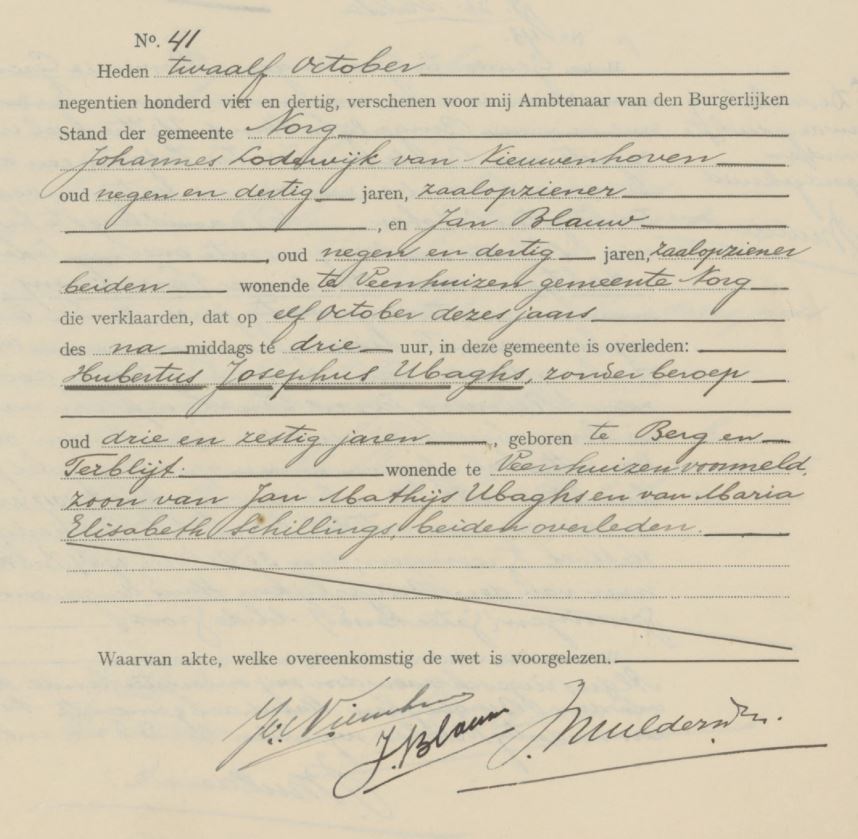 No. 41
Heden twaalf October
negentien honderd vier en dertig, verschenen voor mij Ambtenaar van den Burgerlijken
Stand der gemeente Norg
Johannes Lodewijk van Nieuwenhoven
oud negen en dertig jaren, zaalopziener
, en Jan Blauw
, oud negen en dertig jaren, zaalopziener
beiden wonende te Veenhuizen gemeente Norg
die verklaarden, dat op elf October dezes jaars
des na middags te drie uur, in deze gemeente is overleden:
Hubertus Josephus Ubaghs, zonder beroep
oud drie en zestig jaren, geboren te Berg en
Terblijt. wonende te Veenhuizen voormeld,
zoon van Jan Mathijs Ubaghs en van Maria
Elisabeth Schillings, beiden overleden.
Waarvan akte, welke overeenkomstig de wet is voorgelezen.
J. Blauw